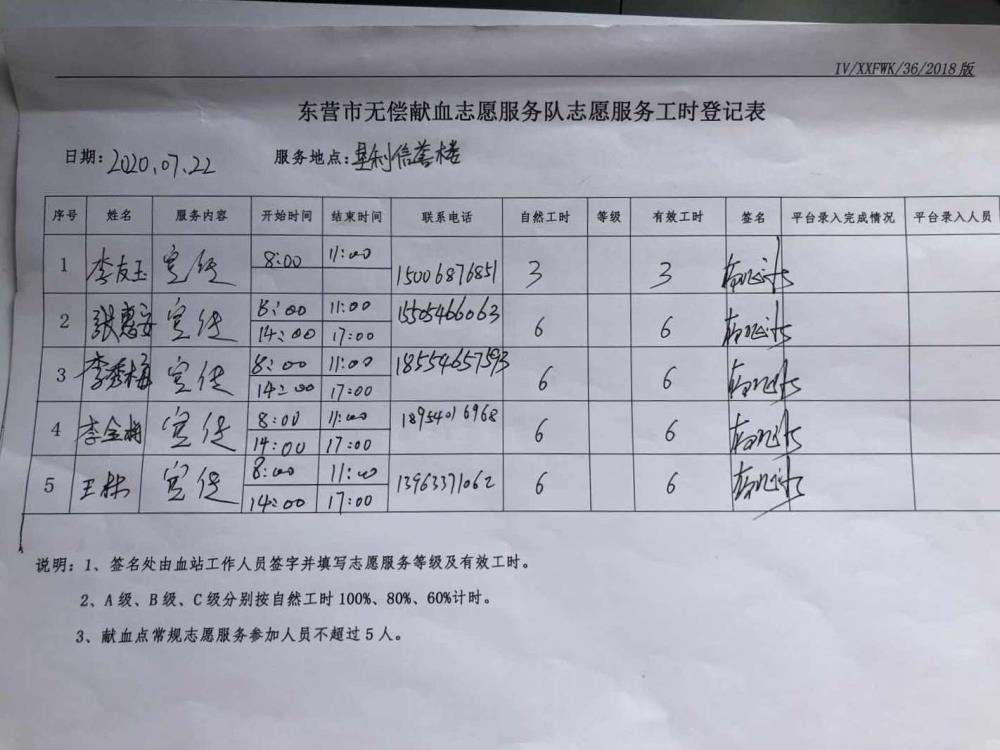 IV/XXFWK/36/2018版
东营市无偿献血志愿服务队志愿服务工时登记表
日期：2020.07.22 服务地点：垦利信誉楼
序号 姓名 服务内容 开始时间 结束时间 联系电话 自然工时 等级 有效工时 签名 平台录入完成情况 平台录入人员
1 李友玉 宣传 8:00 11:00 15006876851 3 3
2 張惠安 宣传 8:00 11:00 15505466063 6 6
14:00 17:00
3 李秀梅 宣传 8:00 11:00 18554657593 6 6
14:00 17:00
4 李金梅 宣传 8:00 11:00 18954016968 6 6
14:00 17:00
5 王林 宣传 8:00 11:00 13963371062 6 6
14:00 17:00
说明：1、签名处由血站工作人员签字并填写志愿服务等级及有效工时。
2、A级、B级、C级分别按自然工时100%、80%、60%计时。
3、献血点常规志愿服务参加人员不超过5人。